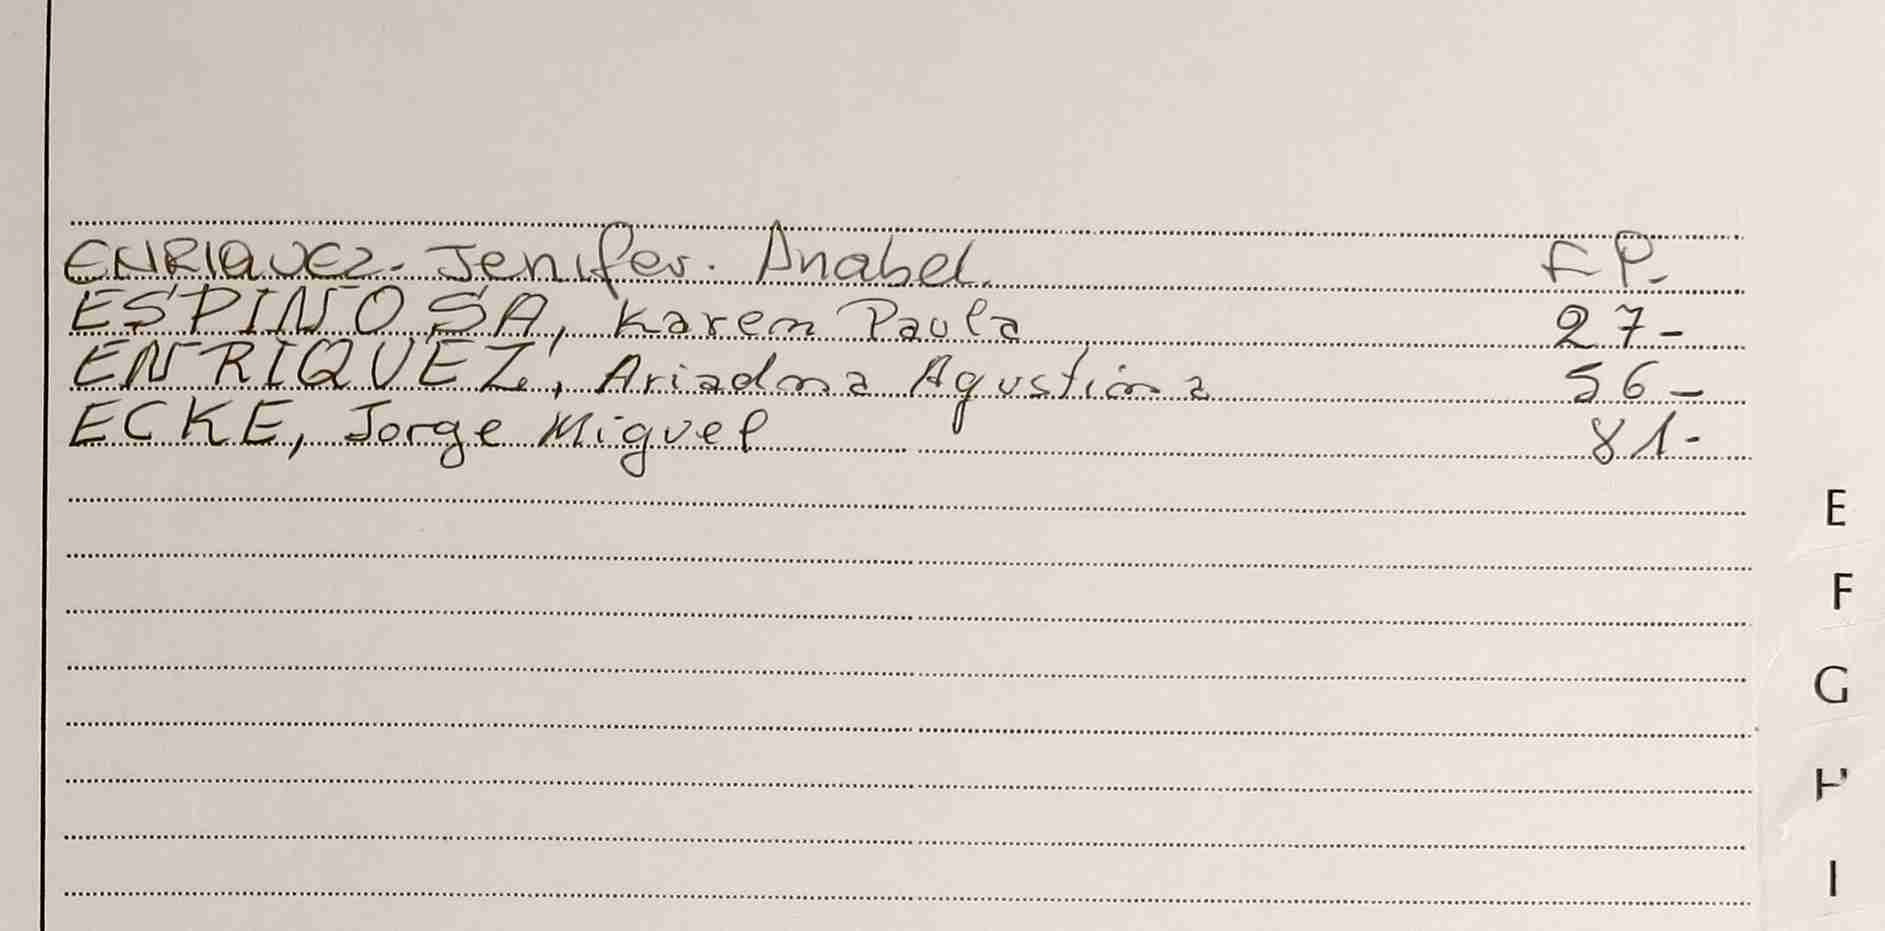 ENRIQUEZ. Jenifer. Anabel. FP.
ESPINOSA, Karem Paula 27-
ENRIQUEZ, Ariadna Agustina 56-
ECKE, Jorge Miguel 81-
E
F
G
H
I